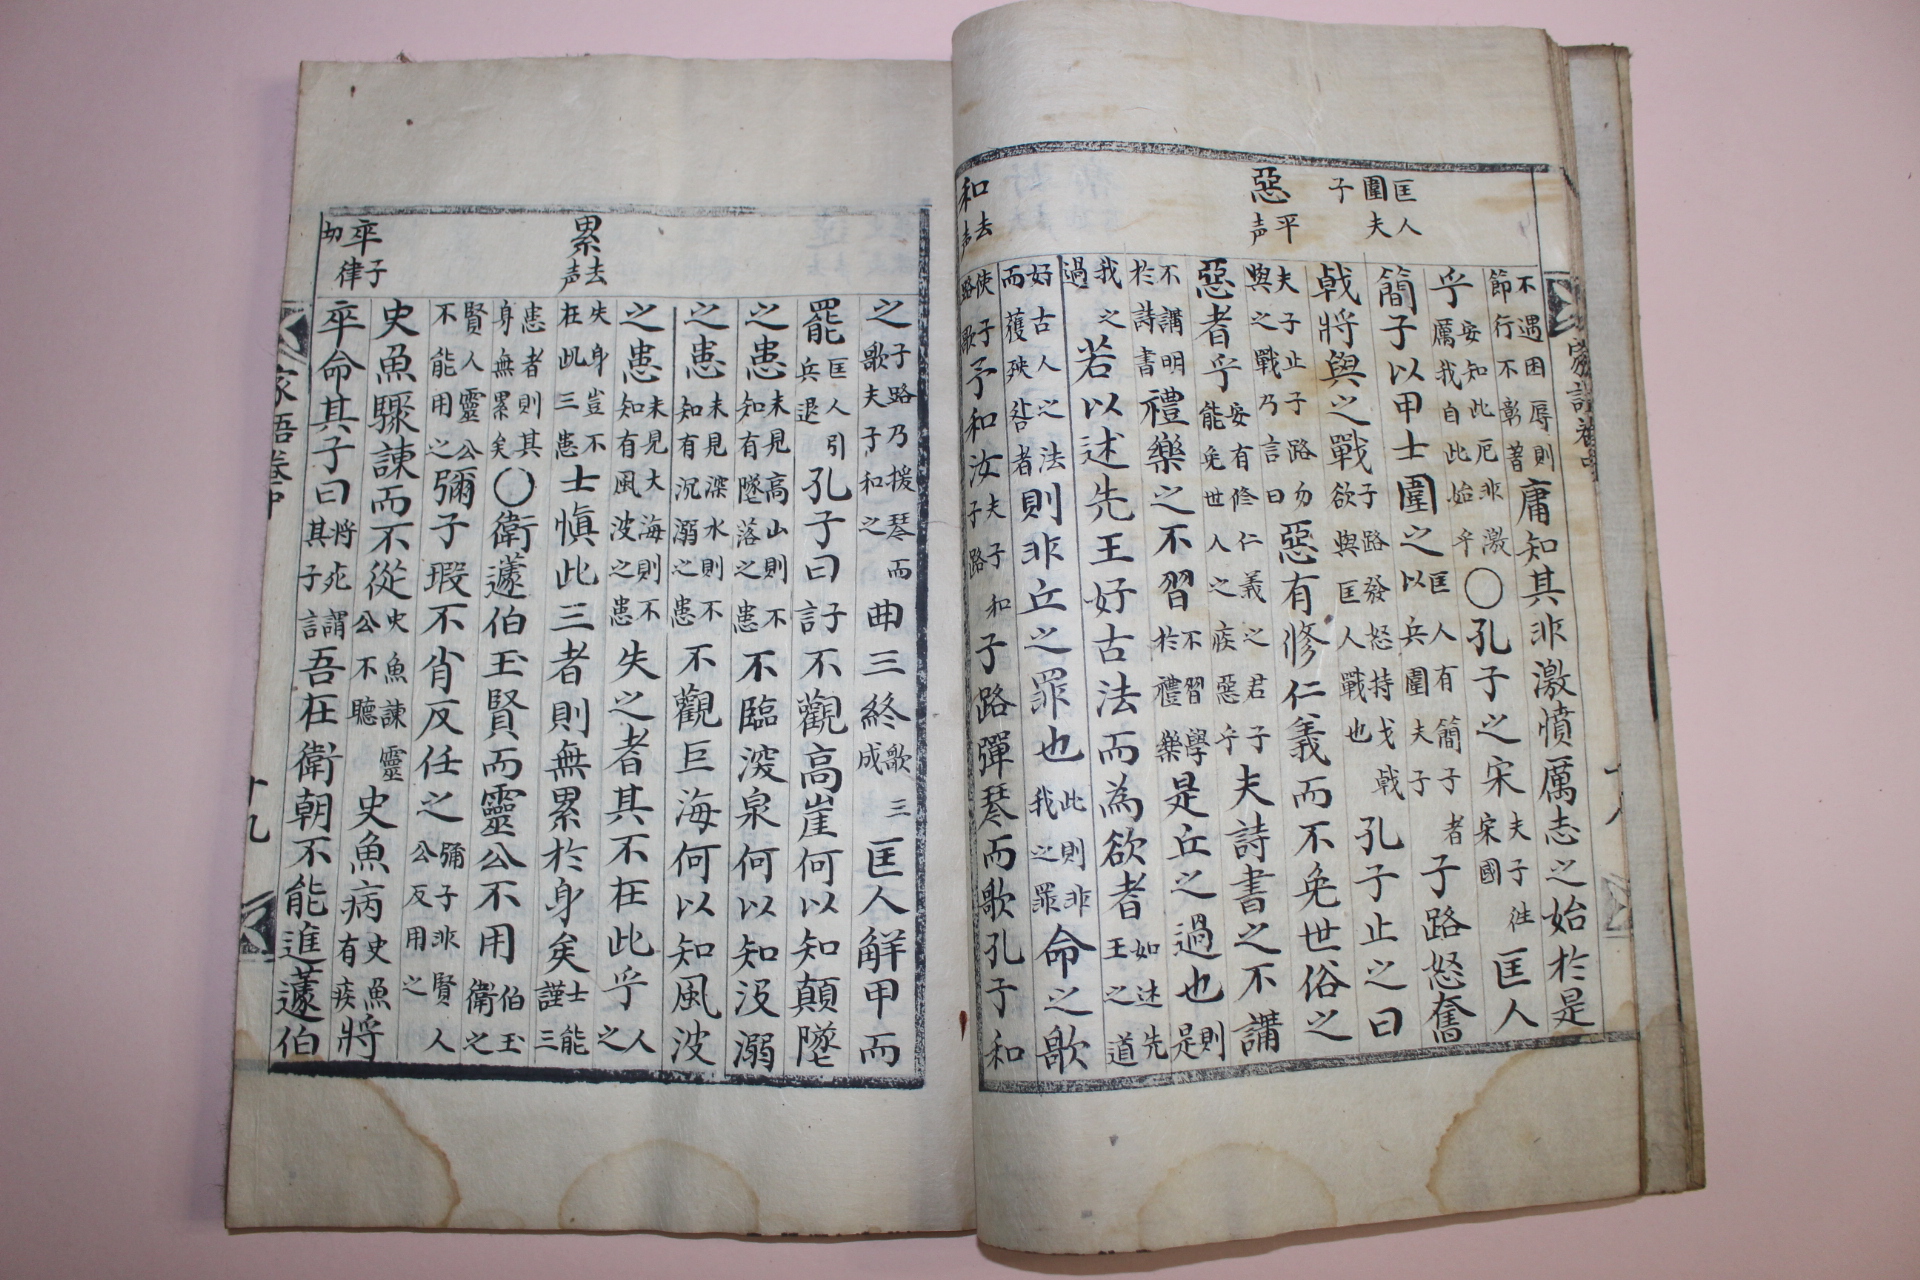 家語卷中
十八
匡人圍夫子
惡平声
和去声
不遇困辱則節行不彰著庸知其非激憤厲志之始於是
乎安知此厄非激厲我自此始乎〇孔子之宋夫子往宋國匡人
簡子以甲士圍之匡人有簡子者以兵圍夫子子路怒奮
戟將與之戰子路發怒持戈戟欲與匡人戰也孔子止之曰
夫子止子路勿與之戰乃言曰惡有修仁義而不免世俗之
惡者乎安有修仁義之君子能免世人之疾惡乎夫詩書之不講
不講明於詩書禮樂之不習不習學於禮樂是丘之過也則是
我之過若以述先王好古法而為欲者如述先王之道
好古人之法而獲殃咎者則非丘之罪也此則非我之罪命之歌
使子路歌予和汝夫子和子路子路彈琴而歌孔子和
累去声
卒子律切
之子路乃援琴而歌夫子和之曲三終歌三成匡人解甲而
罷匡人引兵退孔子曰不觀高崖何以知顛墜
之患未見高山則不知有墜落之患不臨深泉何以知没溺
之患未見深水則不知有沉溺之患不觀巨海何以知風波
之患未見大海則不知有風波之患失之者其不在此乎人之
失身豈不在此三患士慎此三者則無累於身矣士能謹三
患者則其身無累矣〇衛蘧伯玉賢而靈公不用伯玉衛之
賢人靈公不能用之彌子瑕不肖反任之彌子非賢人公反用之
史魚驟諫而不從史魚諫靈公不聽史魚病史魚有疾將
卒命其子曰將死謂其子言吾在衛朝不能進蘧伯
家語卷中
十九